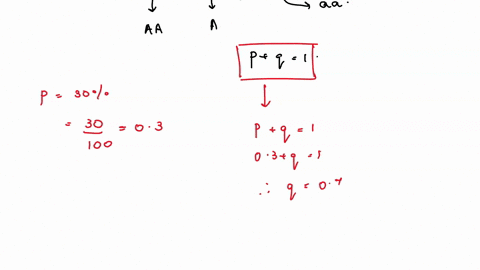 aa.
AA A
P + q = 1.
P = 30%
= 30/100 = 0.3
P + q = 1
0.3 + q = 1
∴ q = 0.7